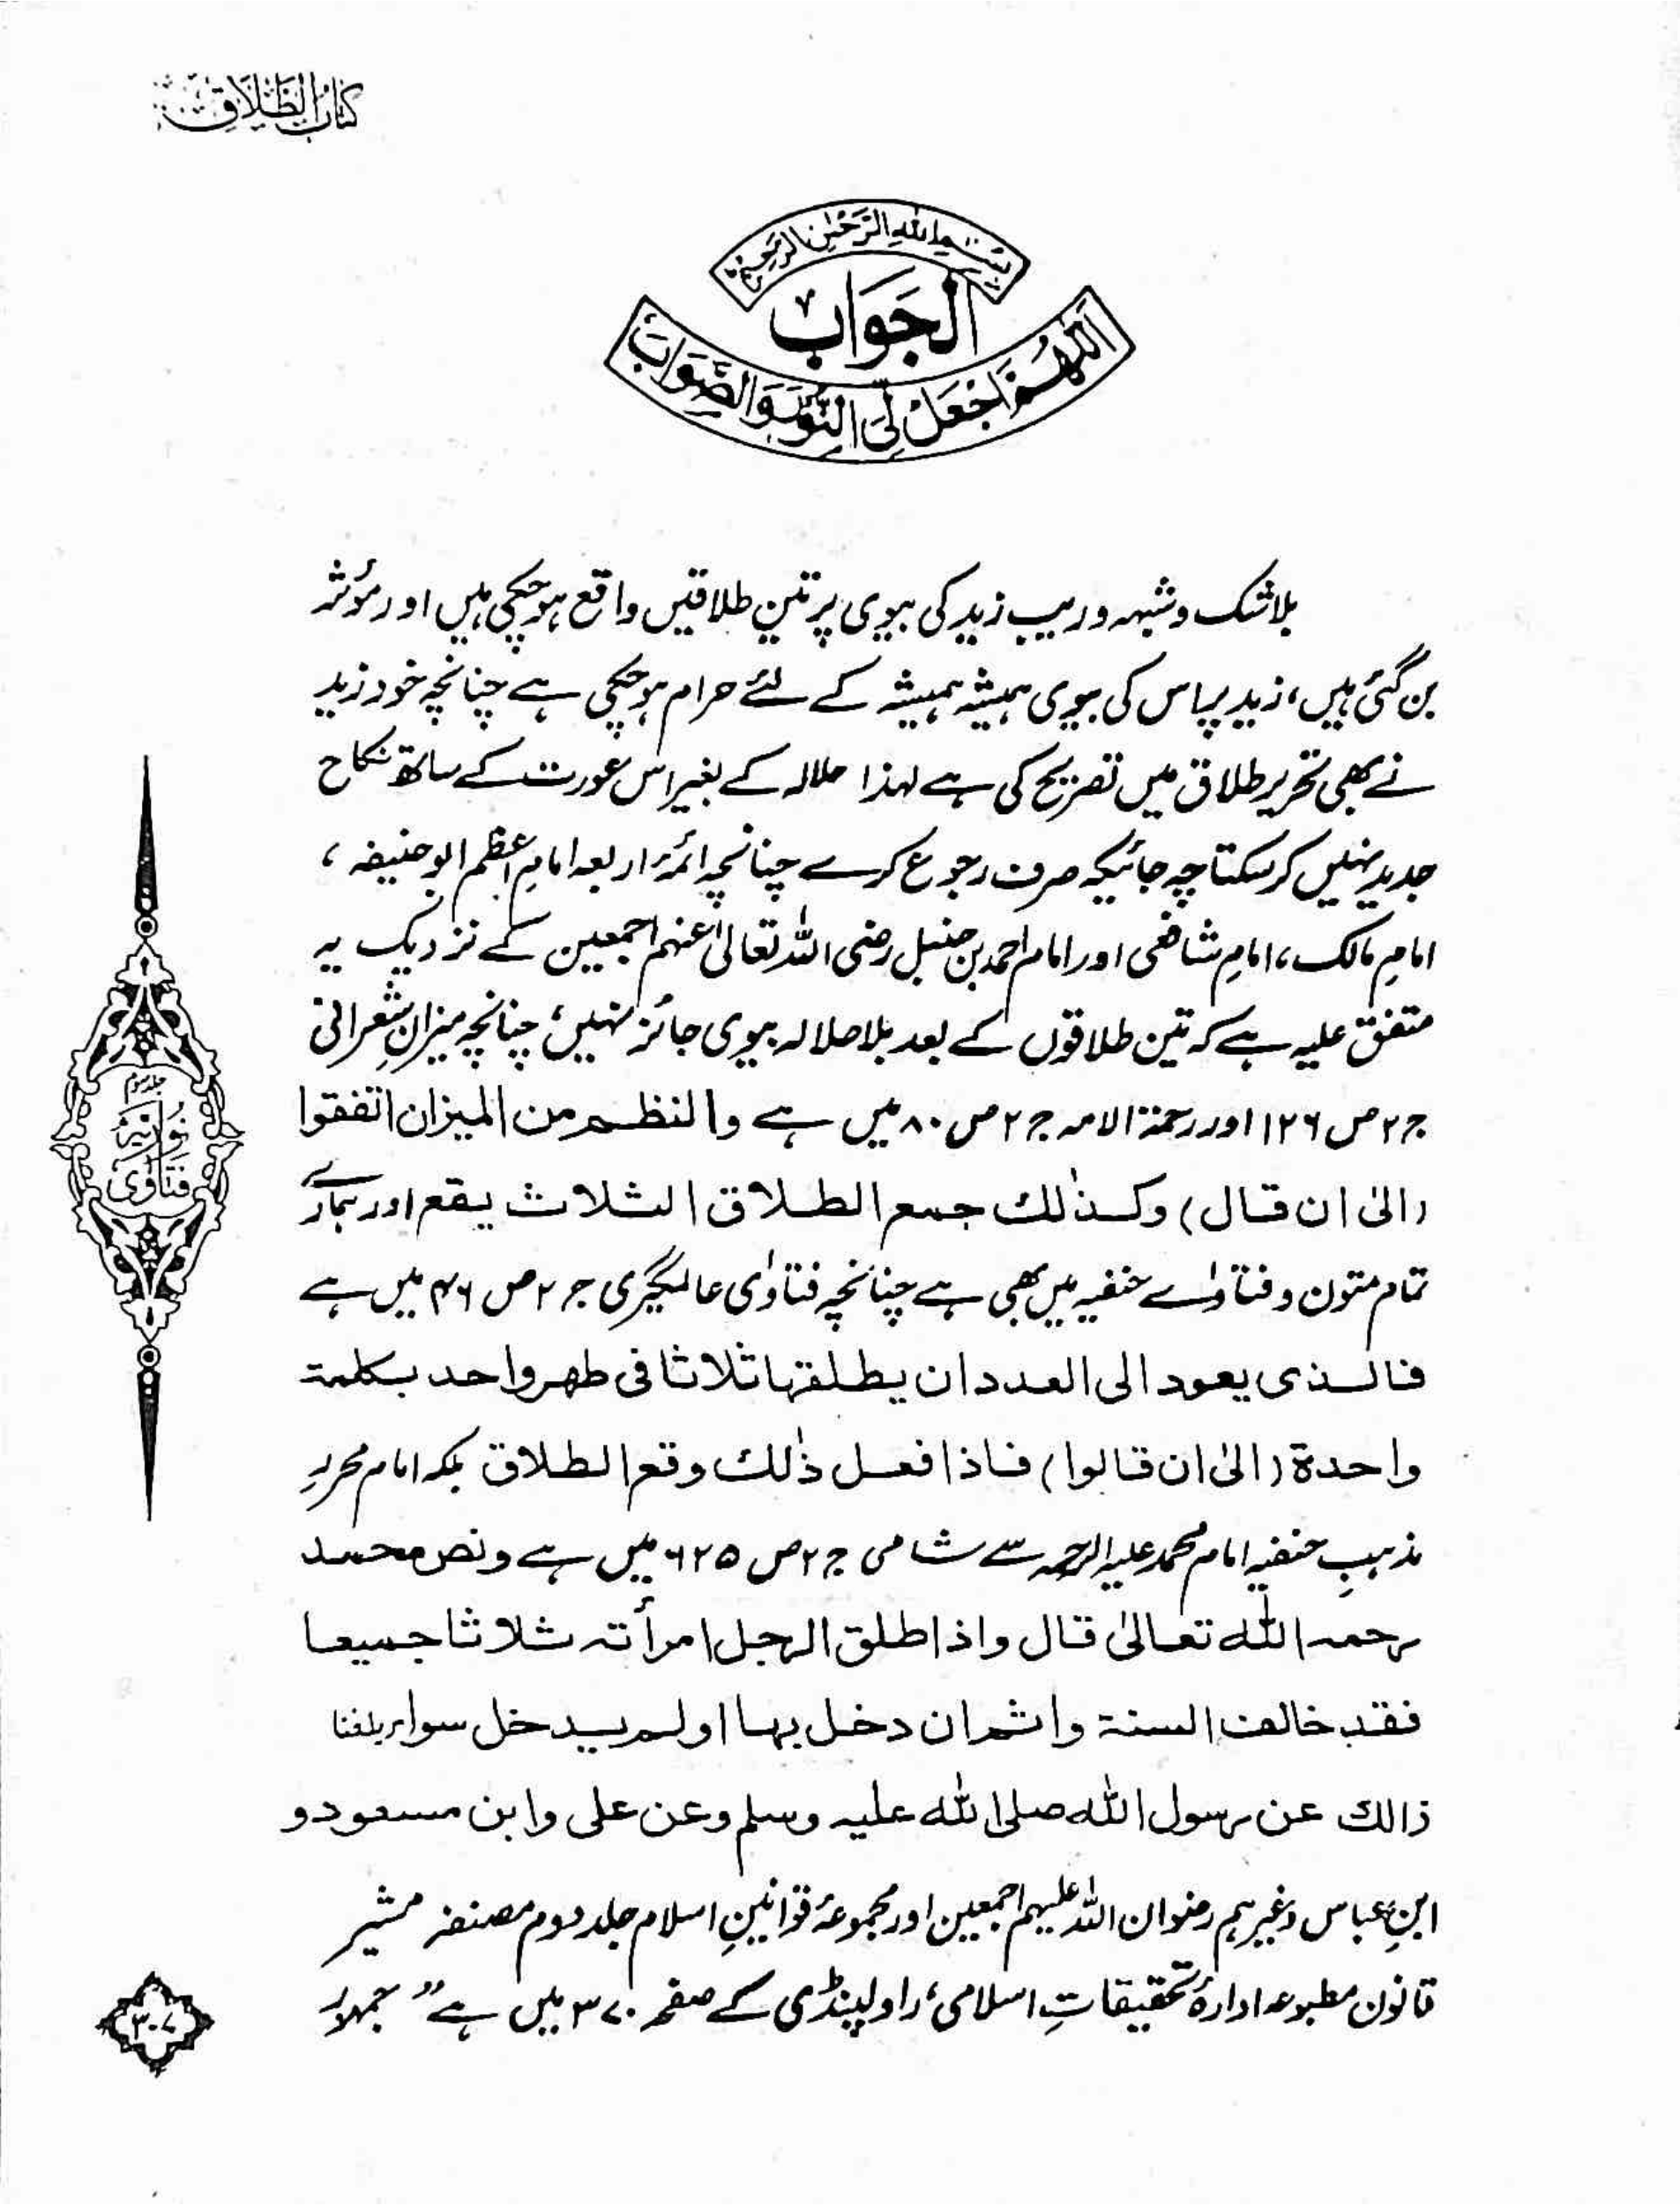 كتاب الطلاق
بسم الله الرحمن الرحيم
الجَوَابُ
اللهم اجعل لي النور والصواب
بلاشک وشبہہ وریب زید کی بیوی پر تین طلاقیں واقع ہوچکی ہیں اور مؤثر
بن گئی ہیں، زید پر اس کی بیوی ہمیشہ ہمیشہ کے لئے حرام ہوچکی ہے چنانچہ خود زید
نے بھی تحریر طلاق میں تصریح کی ہے لہذا حلالہ کے بغیر اس عورت کے ساتھ نکاح
جدید نہیں کرسکتا چہ جائیکہ صرف رجوع کرے چنانچہ ائمۂ اربعہ امامِ اعظم ابوحنیفہ،
امامِ مالک، امامِ شافعی اور امام احمد بن حنبل رضی اللہ تعالیٰ عنہم اجمعین کے نزدیک یہ
متفق علیہ ہے کہ تین طلاقوں کے بعد بلا حلالہ بیوی جائز نہیں، چنانچہ میزانِ شعرانی
ج ۲ ص ۱۲۶ اور رحمۃ الامہ ج ۲ ص ۸۰ میں ہے والنظم من المیزان اتفقوا
(الیٰ ان قال) وکذٰلك جمع الطلاق الثلاث یقع اور ہمارے
تمام متون و فتاوٰے حنفیہ میں بھی ہے چنانچہ فتاوٰی عالمگیری ج ۲ ص ۴۶ میں ہے
فالذی یعود الی العدد ان یطلقہا ثلاثا فی طهر واحد بکلمة
واحدة (الیٰ ان قالوا) فاذا فعل ذٰلك وقع الطلاق بلکہ امام محررِ
مذہبِ حنفیہ امام محمد علیہ الرحمہ سے شامی ج ۲ ص ۶۲۵ میں ہے ونص محمد
رحمہ اللہ تعالیٰ قال واذا طلق الرجل امرأتہ ثلاثا جمیعا
فقد خالف السنة واثم ان دخل بہا اولم یدخل سواء بلغنا
ذالك عن رسول اللہ صلی اللہ علیہ وسلم وعن علی وابن مسعود و
ابنِ عباس وغیرہم رضوان اللہ علیہم اجمعین اور مجموعۂ قوانینِ اسلام جلد دوم مصنفہ مشیر
قانون مطبوعہ ادارۂ تحقیقاتِ اسلامی، راولپنڈی کے صفحہ ۳۷۰ میں ہے ” جمہور
جلد سوم
فتاوٰی
نوریہ
۳۰۷